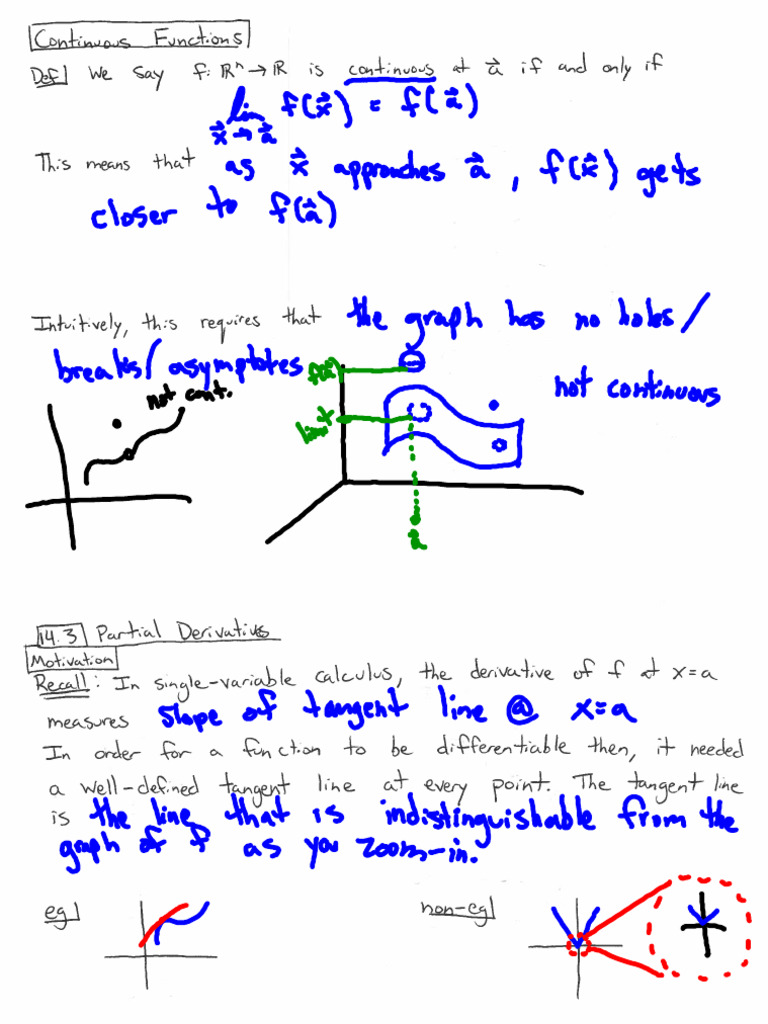 Continuous Functions
Def We say f: ℝⁿ → ℝ is continuous at a⃗ if and only if
lim f(x⃗) = f(a⃗)
x⃗ → a⃗
This means that as x⃗ approaches a⃗, f(x⃗) gets
closer to f(a⃗)
Intuitively, this requires that the graph has no holes/
breaks/asymptotes
not cont.
f(a⃗)
not continuous
lim f
a
14.3 Partial Derivatives
Motivation
Recall: In single-variable calculus, the derivative of f at x=a
measures slope of tangent line @ x=a
In order for a function to be differentiable then, it needed
a well-defined tangent line at every point. The tangent line
is the line that is indistinguishable from the
graph of f as you zoom-in.
eg
non-eg